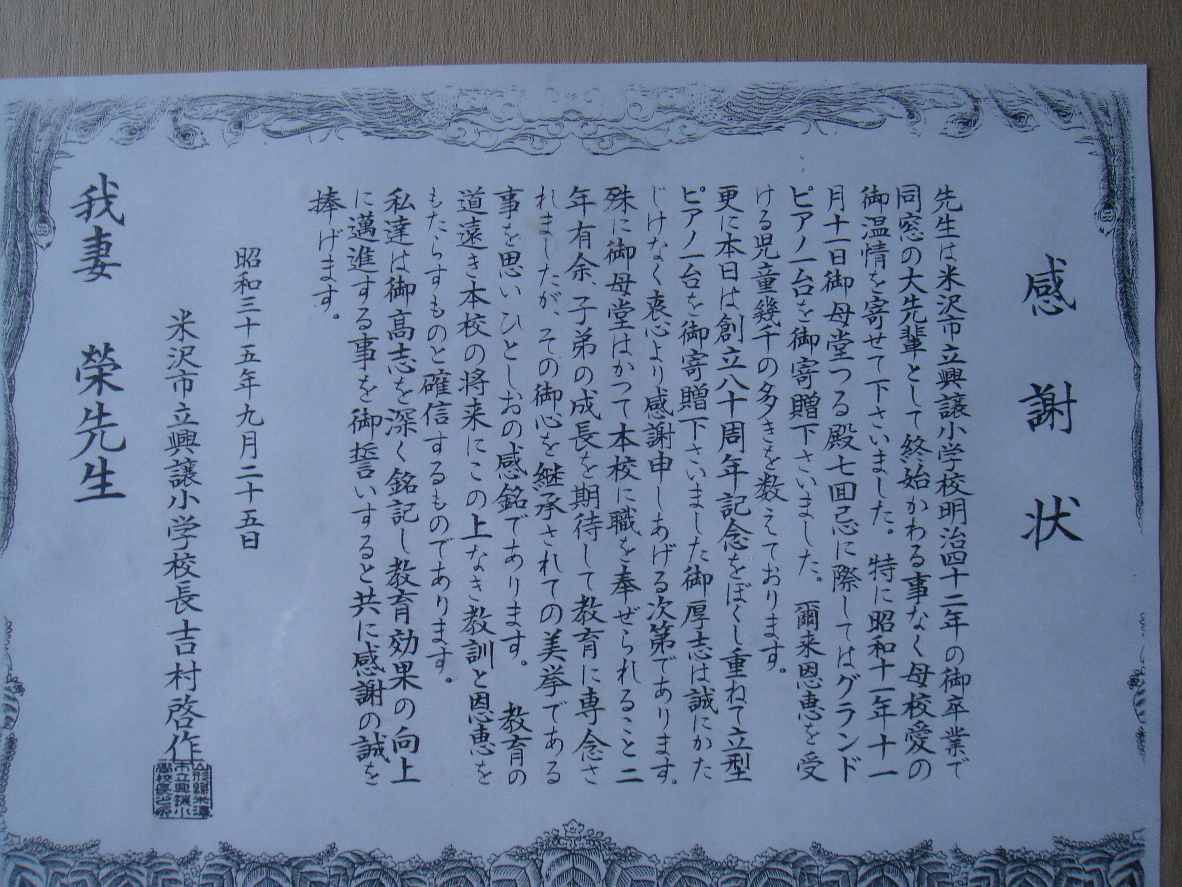 感謝状
先生は米沢市立興譲小学校明治四十二年の御卒業で
同窓の大先輩として終始かわる事なく母校愛の
御温情を寄せて下さいました。特に昭和十一年十一
月十一日御母堂つる殿七回忌に際してはグランド
ピアノ一台を御寄贈下さいました。爾来恩恵を受
ける児童幾千の多きを数えております。
更に本日は創立八十周年記念をぼくし重ねて立型
ピアノ一台を御寄贈下さいました御厚志は誠にかた
じけなく衷心より感謝申しあげる次第であります。
殊に御母堂はかつて本校に職を奉ぜられること二
年有余、子弟の成長を期待して教育に専念さ
れましたが、その御心を継承されての美挙である
事を思いひとしおの感銘であります。教育の
道遠き本校の将来にこの上なき教訓と恩恵を
もたらすものと確信するものであります。
私達は御高志を深く銘記し教育効果の向上
に邁進する事を御誓いすると共に感謝の誠を
捧げます。
昭和三十五年九月二十五日
米沢市立興譲小学校長吉村啓作
我妻榮先生